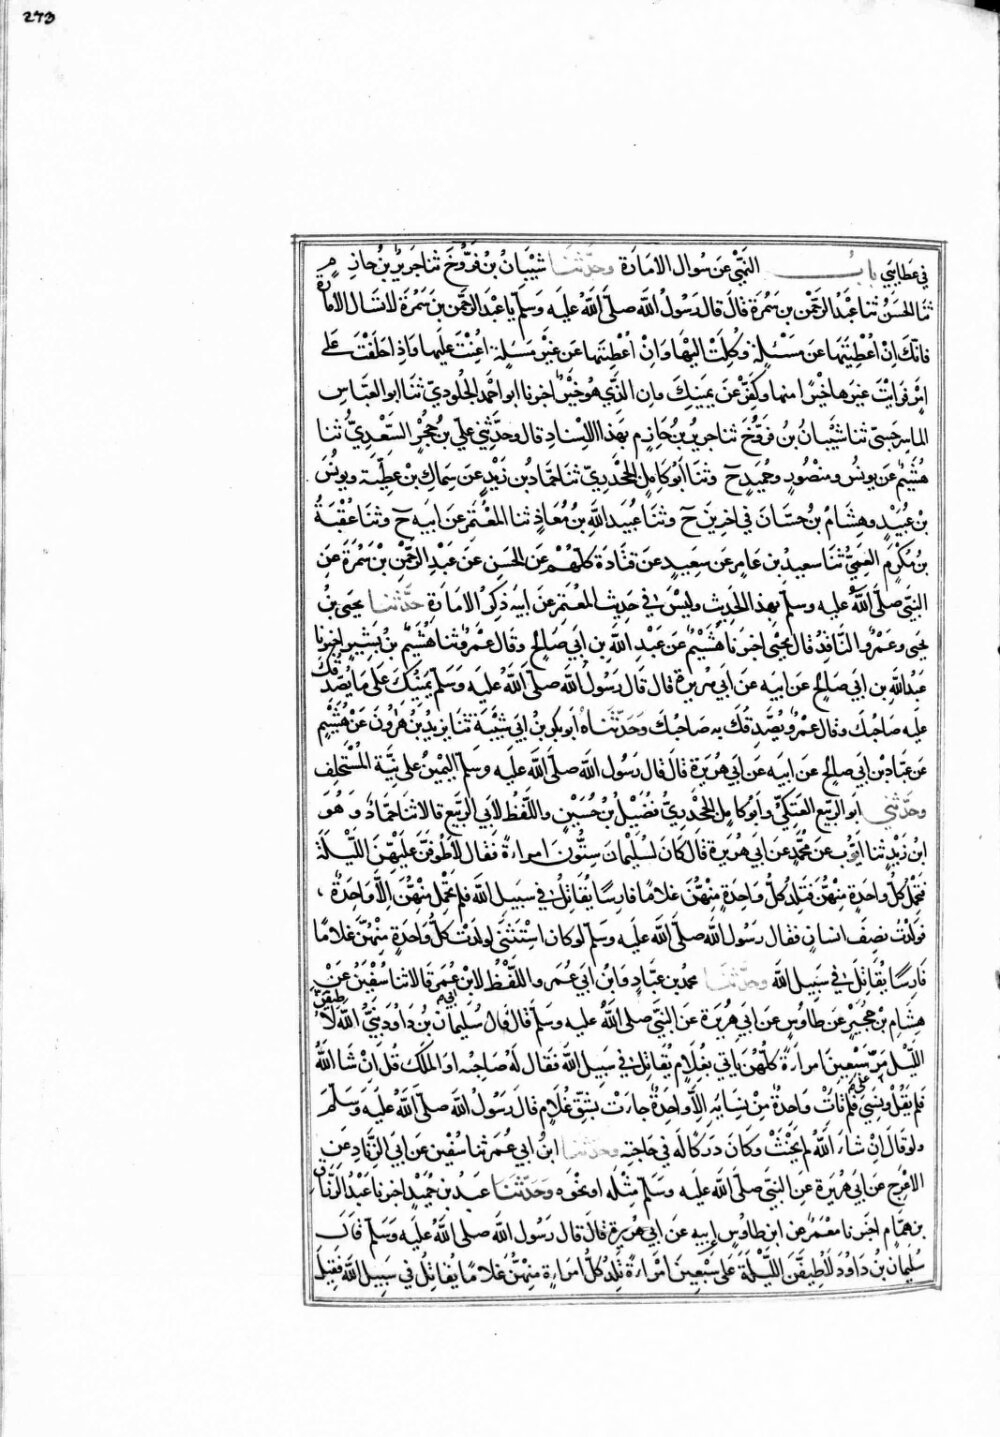 273
في عطايتي باب النهي عن سوال الامارة وحدثنا شَيْبَانُ بْنُ فَرُّوخَ ثنا جَرِيرُ بْنُ حازم
ثنا الحَسَنُ ثنا عَبْدُ الرَّحْمٰنِ بن سَمُرَةَ قالَ قال رَسُولُ اللَّه صلّى اللَّهُ عليه وَسَلم يا عبد الرّحمن بن سَمُرَةَ لا تسال الامارة
فانّك اِنْ اُعْطِيتَهَا عَن مَسْئَلةٍ وكِلْتَ اليْهَا وَانْ اُعْطِيتَها عَن غَيْرِ مَسئلةٍ اُعِنْتَ عليها وَاذِا حَلَفْتَ عَلَى
امْرٍ فَرَايْتَ غيرَها خيْرًا منها وكَفِّرْ عَن يمينِكَ وات الذّي هُوَ خيْرٌ اخبرنا ابو احْمَد الجُلوديّ ثنا ابو العبّاس
الماسَرجسيّ ثنا شَيْبانُ بنُ فَرُّوخَ ثنا جريرُ بنُ حازِم بهذا الاِسْنادِ قال وحدَّثني عليّ بن حُجْرٍ السَّعْدِيُّ ثنا
هُشَيْمٌ عَن يونُسَ ومنْصُورٍ وحُمَيدٍ ح وثنا اَبُو كامِلٍ الجَحْدَرِيّ ثنا حَمّاد بنُ زَيْدٍ عَن سِمَاكِ بنِ عَطِيَّةَ ويونُسَ
بنِ عُبَيْدٍ وهِشَام بنِ حسَّانَ فِي اخرِينَ ح وثنا عُبَيدُ اللَّه بنُ مُعَاذٍ ثنا المُعْتَمِرُ عَن ابيه ح وثنا عُقْبَةُ
بنُ مُكْرَمٍ العَمِّيُّ ثنا سعيدُ بنُ عامِرٍ عَن سَعِيدٍ عَن قتَادةَ كلّهُمْ عَنِ الحَسَنِ عَن عَبْدِ الرّحْمٰنِ بْن سَمُرَةَ عَنِ
النّبيّ صلّى اللّهُ عليه وسلم بهذا الحَدِيث وليْسَ في حَدِيثِ المُعْتَمِرِ عَن ابيه ذِكرُ الامَارَةِ حدّثنا يحيى بنُ
يحيى وعَمْرٌو النّاقِدُ قال يحيى اخبرنا هُشَيْمٌ عَن عَبْدِ اللَّه بن ابي صَالِحٍ وقال عَمْرٌو ثنا هُشَيْمُ بنُ بَشِيرٍ اخبرنا
عَبْدُ اللَّهِ بن ابي صَالحٍ عَن ابيه عَن ابي هريرة قال قَالَ رَسُولُ اللَّه صلّى اللَّهُ عليه وَسَلّم يَمِينُكَ عَلَى مَا يُصَدِّقُكَ
عليه صَاحِبُكَ وقال عَمْرٌو يُصَدِّقُكَ به صَاحبُكَ وَحَدّثنَاهُ اَبو بكر بنُ ابي شَيْبَةَ ثنا يزيدُ بنُ هٰرُونَ عَنْ هُشَيْمٍ
عَن عَبَّادِ بن ابي صالحٍ عَن ابيه عَن ابي هُرَيرةَ قالَ قال رَسُول اللَّه صلّى اللَّهُ عليه وسَلم اليَمِينُ على نِيَّةِ المُسْتَحْلِفِ
وحدّثني ابو الرّبيع العَتكيُّ وابُو كامِلٍ الجَحْدَرِيُّ فُضَيْلُ بنُ حُسَيْنٍ واللّفظُ لاَبي الرَّبيعِ قالا ثنا حَمَّادٌ وَهُوَ
ابن زَيْدٍ ثنا ايّوب عَن مُحَمَّدٍ عَن ابي هريرة قَالَ كَانَ لسُليمَانَ سِتُّونَ امراءةً فقال لَاَطُوفَنَّ عَلَيْهِنَّ اللَّيْلَةَ
فَتحْمِلُ كلُّ واحدةٍ مِنْهُنَّ فَتَلِدُ كلُّ وَاحِدَةٍ مِنْهُنَّ غلامًا فارِسًا يُقَاتِلُ في سَبيل اللَّه فلم تَحْمِلْ مِنْهُنَّ اِلّا وَاحِدَةٌ
فَوَلَدَتْ نصِفَ انسَانٍ فقال رَسُول اللَّه صلّى اللَّهُ عليه وسلم لو كان اسْتَثْنى لولدَتْ كلُّ وَاحِدَةٍ مِنْهُنَّ غلامًا
فارِسًا يُقاتِلُ في سَبِيل اللَّه وحدّثنا محمدُ بن عبّادٍ وابنُ ابي عُمَر واللّفظُ لابْنِ عُمَرَ قالا ثنا سُفْيٰنُ عَنْ
هِشَامِ بنِ حُجَيْرٍ عَن طاوُسٍ عَن ابي هُرَيرَةَ عَن النّبيّ صلّى اللَّهُ عليه وسلم قال قال سُليمانُ بن دَاوُدَ نبيُّ اللَّه لَاَطيفَنّ
اللّيْلةَ عَلى سَبْعِينَ امراءةً كلّهُنّ ياتي بغُلَامٍ يُقَاتِلُ في سَبِيل اللَّه فقَال لَهُ صَاحبُه اوِ المَلَكُ قُلْ اِنْ شاءَ اللَّهُ
فلم يَقُلْ ونَسِيَ فلم تاتِ وَاحدةٌ مِنْ نِسَايِه اِلّا وَاحِدَةٌ جاءَتْ بشِقِّ غُلَامٍ قال رَسُولُ اللَّه صلّى اللَّهُ عليه وسلم
ولو قالَ اِنْ شاءَ اللَّهُ لم يَحْنَثْ وكَانَ دَرَكًا لَهُ في حَاجته وحدّثنا ابنُ ابي عُمَر ثنا سُفْيٰن عَن ابي الزِّنادِ عَن
الاعْرَجِ عَن ابي هُرَيرةَ عَنِ النّبيّ صلّى اللَّهُ عليه وسَلم مِثْلَه او نحْوَه وَحَدّثنَا عبدُ بن حُمَيْدٍ اخبرنا عَبْدُ الرَّزَّاقِ
بن هَمّامٍ اخبرنا مَعْمَرٌ عن ابن طاوُسٍ ابيه عَن ابي هُرَيرة قال قال رَسُولُ اللَّه صلى اللَّهُ عليه وسَلم قال
سُليمانُ بن دَاوُدَ لَاُطيفَنَّ اللّيْلةَ عَلى سَبْعِينَ امْرَاءةً تَلِدُ كلُّ امْرَاءةٍ مِنْهُنَّ غلامًا يُقاتِلُ في سَبِيل اللَّه فَقِيلَ